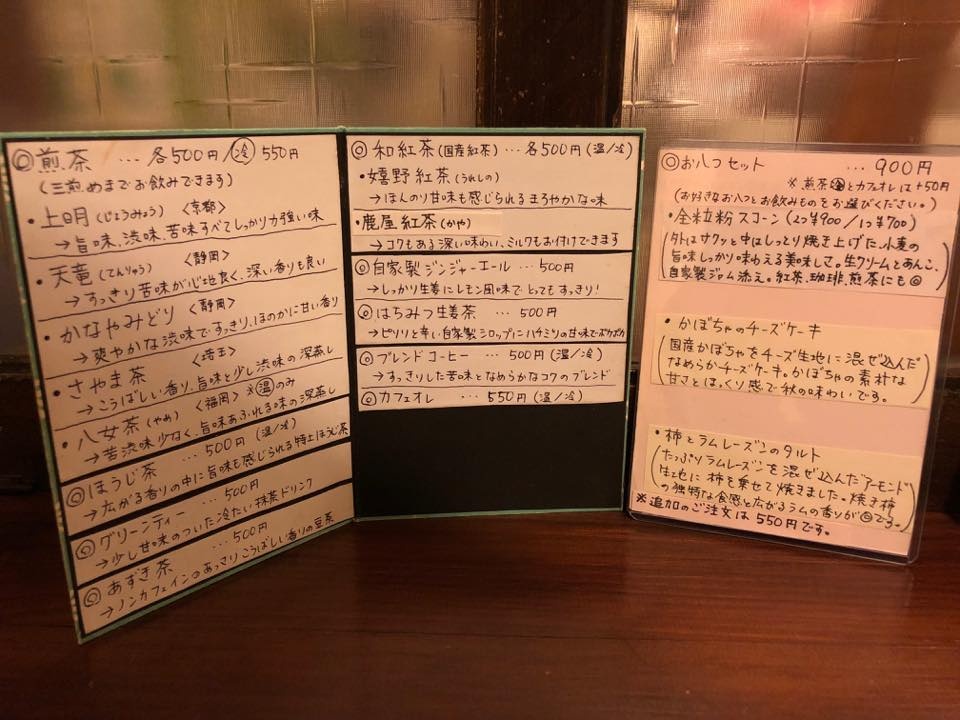 ◎煎茶 … 各500円/冷 550円
(三煎めまでお飲みできます)
・上明(じょうみょう) 〈京都〉
→旨味、渋味、苦味すべてしっかり力強い味
・天竜(てんりゅう) 〈静岡〉
→すっきり苦味が心地良く、深い香りも良い
・かなやみどり 〈静岡〉
→爽やかな渋味ですっきり、ほのかに甘い香り
・さやま茶 〈埼玉〉
→こうばしい香り、旨味と少し渋味の深蒸し
・八女茶(やめ) 〈福岡〉 ※温のみ
→苦渋味少なく、旨味あふれる味の深蒸し
◎ほうじ茶 … 500円 (温/冷)
→広がる香りの中に旨味も感じられる特上ほうじ茶
◎グリーンティー … 500円
→少し甘味のついた冷たい抹茶ドリンク
◎あずき茶 … 500円
→ノンカフェインのあっさりこうばしい香りの豆茶
◎和紅茶(国産紅茶) … 各500円(温/冷)
・嬉野紅茶(うれしの)
→ほんのり甘味も感じられるまろやかな味
・鹿屋紅茶(かや)
→コクもある深い味わい、ミルクもお付けできます
◎自家製ジンジャーエール … 500円
→しっかり生姜にレモン風味でとってもすっきり!
◎はちみつ生姜茶 … 500円
→ピリリと辛い自家製シロップにハチミツの甘味でポカポカ
◎ブレンドコーヒー … 500円(温/冷)
→すっきりした苦味となめらかなコクのブレンド
◎カフェオレ … 550円(温/冷)
◎お八つセット … 900円
※煎茶冷とカフェオレは+50円
(お好きなお八つとお飲みものをお選びください。)
・全粒粉スコーン(2つ¥900/1つ¥700)
(外はサクッと中はしっとり焼き上げた、小麦の
旨味しっかり味わえる美味しさ。生クリームとあんこ、
自家製ジャム添え。紅茶、珈琲、煎茶にも◎)
・かぼちゃのチーズケーキ
(国産かぼちゃをチーズ生地に混ぜ込んだ
なめらかチーズケーキ。かぼちゃの素朴な
甘さとほっくり感で秋の味わいです。)
・柿とラムレーズンのタルト
(たっぷりラムレーズンを混ぜ込んだアーモンド
生地に柿を乗せて焼きました。焼き柿
の独特な食感と広がるラムの香りが◎です。)
※追加のご注文は550円です。